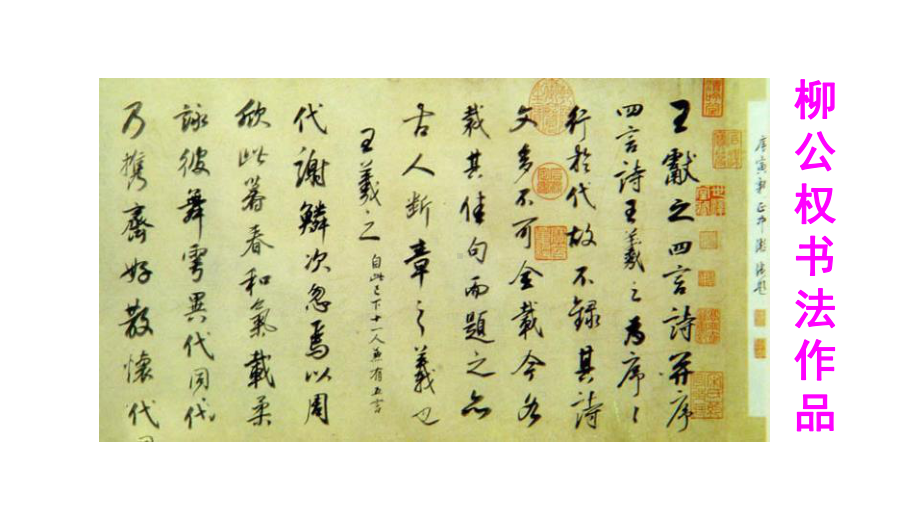 柳公权书法作品
王獻之四言詩并序
四言詩王羲之為序序
行於代故不錄其詩
文多不可全載今各
裁其佳句而題之亦
古人斷章之義也
王羲之 自此已下十一人並有五言
代謝鱗次忽焉以周
欣此暮春和氣載柔
詠彼舞雩異代同流
乃攜齊好散懷一丘